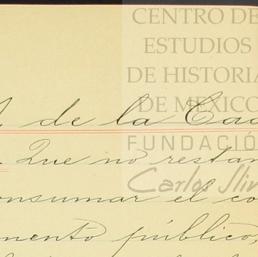 CENTRO DE
ESTUDIOS
DE HISTORIA
DE MEXICO
FUNDACIÓ
Carlos Sli
de la
Que no restan
onsumar el co
mento público,